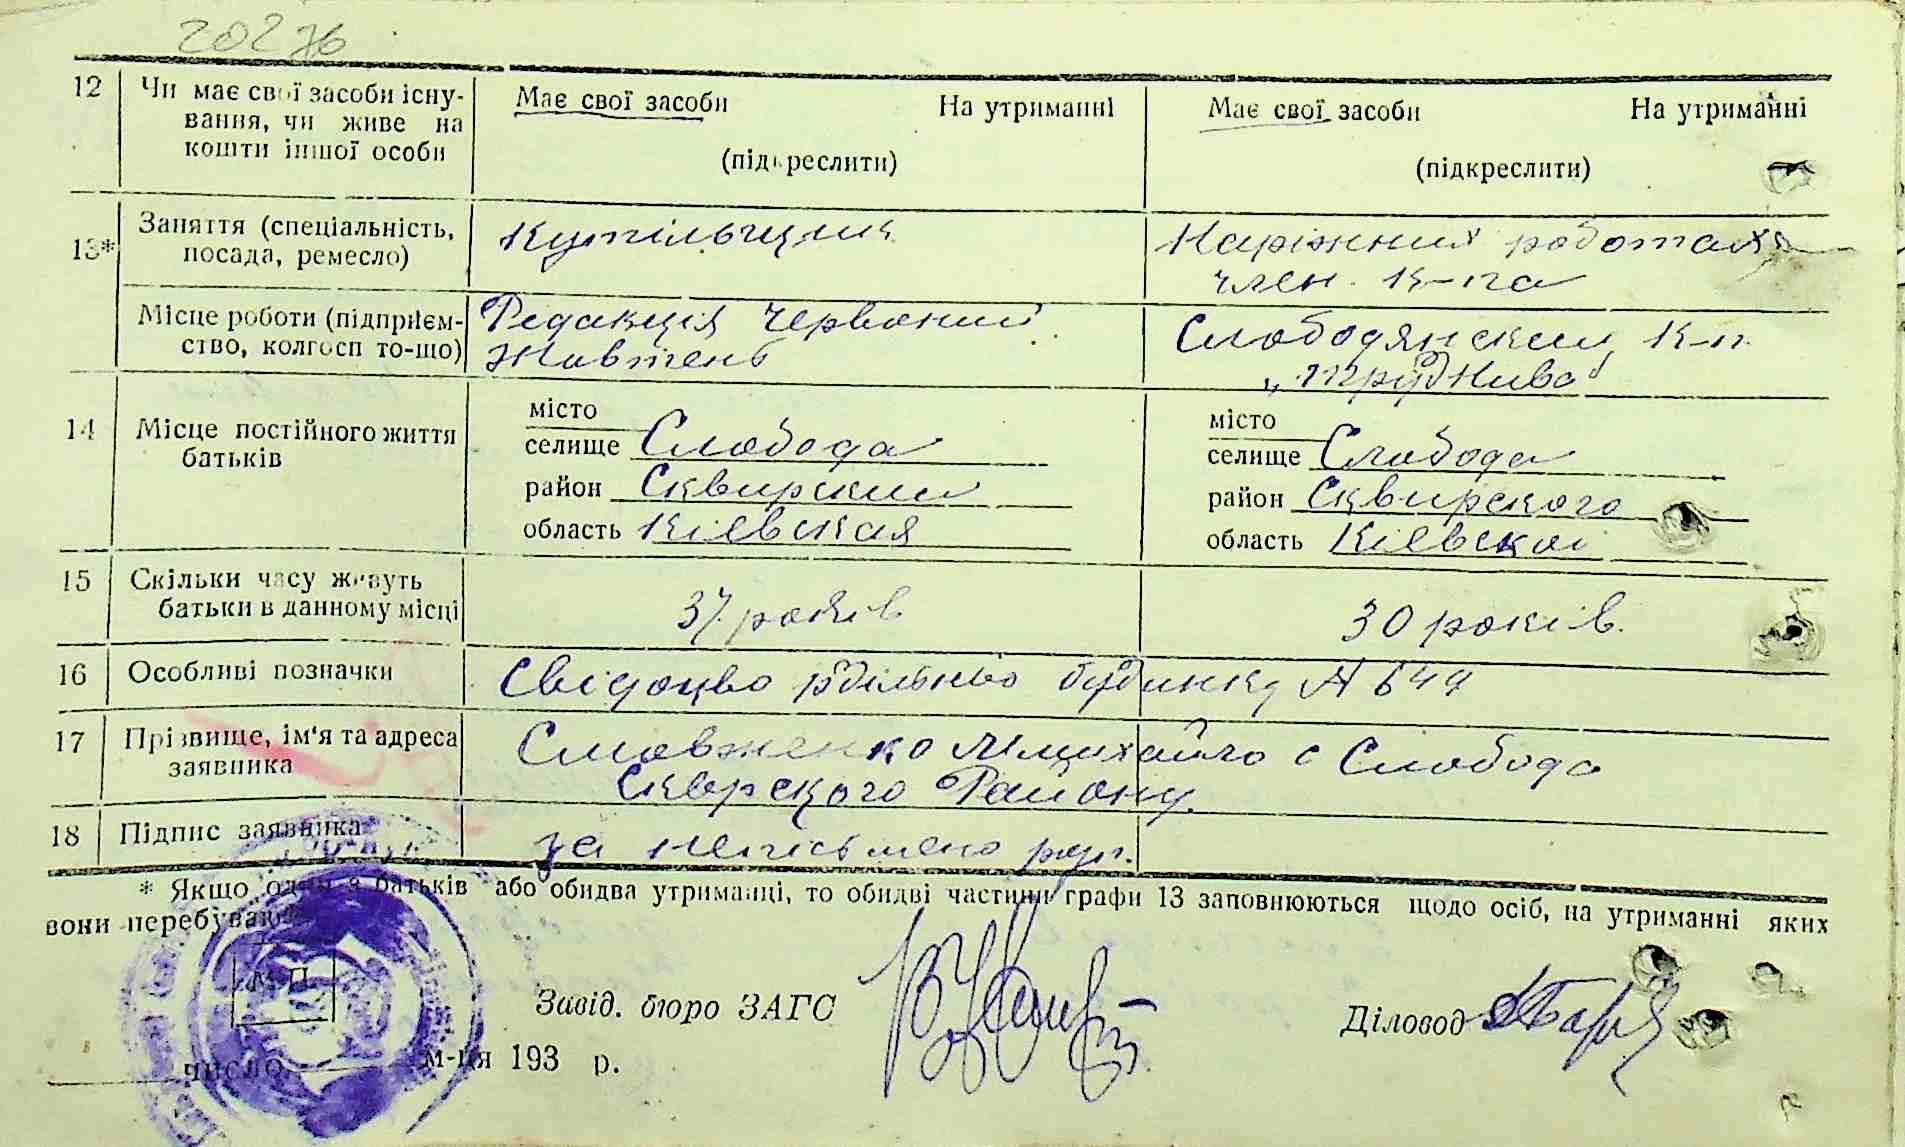 20276
12 Чи має свої засоби існу- Має свої засоби На утриманні Має свої засоби На утриманні
вання, чи живе на
кошти іншої особи (підкреслити) (підкреслити)
13* Заняття (спеціальність,
посада, ремесло) член. к-па
Місце роботи (підприєм- Редакція Червоний Слободянский К-п.
ство, колгосп то-що) Жовтень „Труд Нива"
14 Місце постійного життя місто місто
батьків селище Слобода селище Слобода
район Сквирский район Сквирского
область Кіевская область Кіевской
15 Скільки часу живуть
батьки в данному місці 37 років 30 років.
16 Особливі позначки Свідоцво будинку
17 Прізвище, ім'я та адреса Михайло с Слобода
заявника Району
18 Підпис заявника за неписьмено
* Якщо один з батьків або обидва утриманці, то обидві частини графи 13 заповнюються щодо осіб, на утриманні яких
вони перебувають
М.П.
Завід. бюро ЗАГС Діловод
число м-ця 193 р.